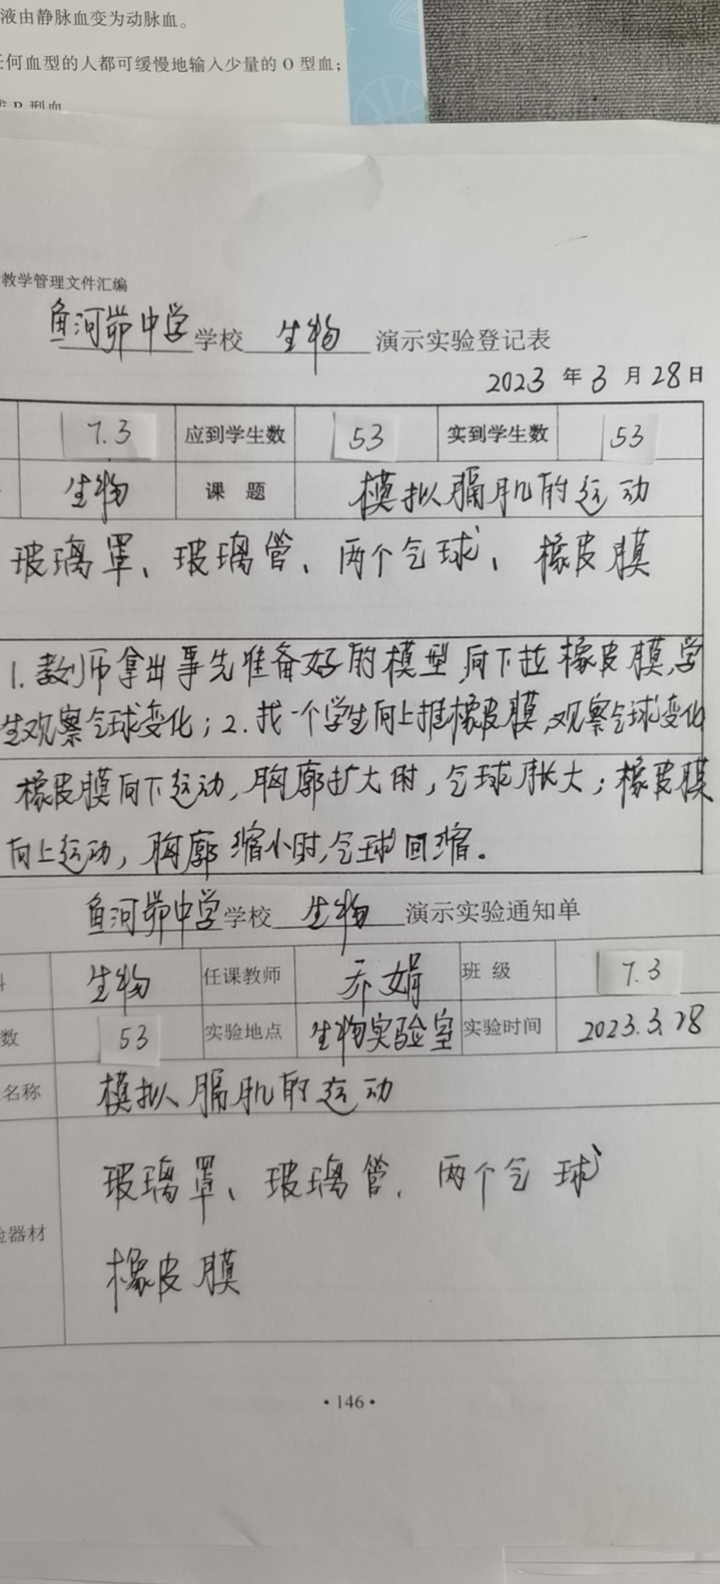 液由静脉血变为动脉血。
任何血型的人都可缓慢地输入少量的 O 型血；
教学管理文件汇编
鱼河峁中学 学校 生物 演示实验登记表
2023 年 3 月 28 日
7.3 应到学生数 53 实到学生数 53
生物 课 题 模拟膈肌的运动
玻璃罩、玻璃管、两个气球、橡皮膜
1. 教师拿出事先准备好的模型，向下拉橡皮膜，学
生观察气球变化；2. 找一个学生向上推橡皮膜，观察气球变化
橡皮膜向下运动，胸廓扩大时，气球胀大；橡皮膜
向上运动，胸廓缩小时，气球回缩。
鱼河峁中学 学校 生物 演示实验通知单
生物 任课教师 乔娟 班 级 7.3
数 53 实验地点 生物实验室 实验时间 2023.3.28
名称 模拟膈肌的运动
玻璃罩、玻璃管、两个气球
验器材
橡皮膜
·146·